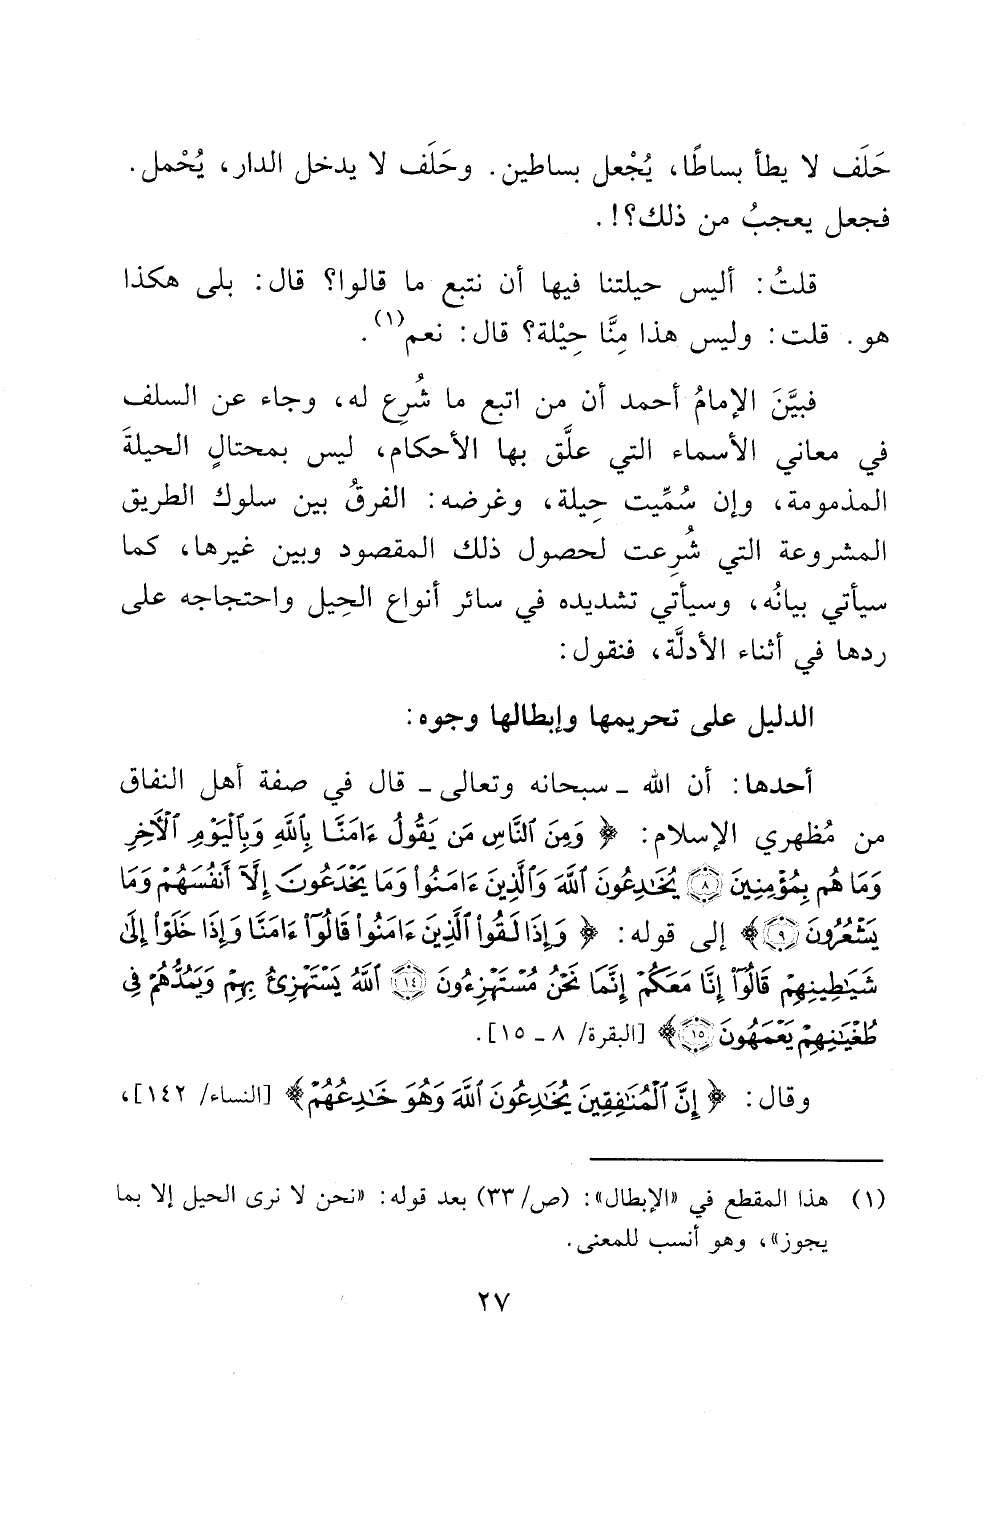 حَلَف لا يطأ بساطًا، يُجْعل بساطين. وحَلَف لا يدخل الدار، يُحْمل.
فجعل يعجبُ من ذلك؟!.
قلتُ: أليس حيلتنا فيها أن نتبع ما قالوا؟ قال: بلى هكذا
هو. قلت: وليس هذا مِنَّا حِيْلة؟ قال: نعم(١).
فبيَّنَ الإمامُ أحمد أن من اتبع ما شُرِع له، وجاء عن السلف
في معاني الأسماء التي علَّق بها الأحكام، ليس بمحتالٍ الحيلةَ
المذمومة، وإن سُمِّيت حِيلة، وغرضه: الفرقُ بين سلوك الطريق
المشروعة التي شُرِعت لحصول ذلك المقصود وبين غيرها، كما
سيأتي بيانُه، وسيأتي تشديده في سائر أنواع الحِيل واحتجاجه على
ردها في أثناء الأدلَّة، فنقول:
الدليل على تحريمها وإبطالها وجوه:
أحدها: أن الله ـ سبحانه وتعالى ـ قال في صفة أهل النفاق
من مُظهري الإسلام: ﴿ وَمِنَ ٱلنَّاسِ مَن يَقُولُ ءَامَنَّا بِٱللَّهِ وَبِٱلْيَوْمِ ٱلْأَخِرِ
وَمَا هُم بِمُؤْمِنِينَ ٨ يُخَٰدِعُونَ ٱللَّهَ وَٱلَّذِينَ ءَامَنُوا۟ وَمَا يَخْدَعُونَ إِلَّآ أَنفُسَهُمْ وَمَا
يَشْعُرُونَ ٩﴾ إلى قوله: ﴿ وَإِذَا لَقُوا۟ ٱلَّذِينَ ءَامَنُوا۟ قَالُوٓا۟ ءَامَنَّا وَإِذَا خَلَوْا۟ إِلَىٰ
شَيَٰطِينِهِمْ قَالُوٓا۟ إِنَّا مَعَكُمْ إِنَّمَا نَحْنُ مُسْتَهْزِءُونَ ١٤ ٱللَّهُ يَسْتَهْزِئُ بِهِمْ وَيَمُدُّهُمْ فِى
طُغْيَٰنِهِمْ يَعْمَهُونَ ١٥﴾ [البقرة/ ٨ ـ ١٥].
وقال: ﴿ إِنَّ ٱلْمُنَٰفِقِينَ يُخَٰدِعُونَ ٱللَّهَ وَهُوَ خَٰدِعُهُمْ﴾ [النساء/ ١٤٢]،
(١) هذا المقطع في «الإبطال»: (ص/ ٣٣) بعد قوله: «نحن لا نرى الحيل إلا بما
يجوز»، وهو أنسب للمعنى.
٢٧